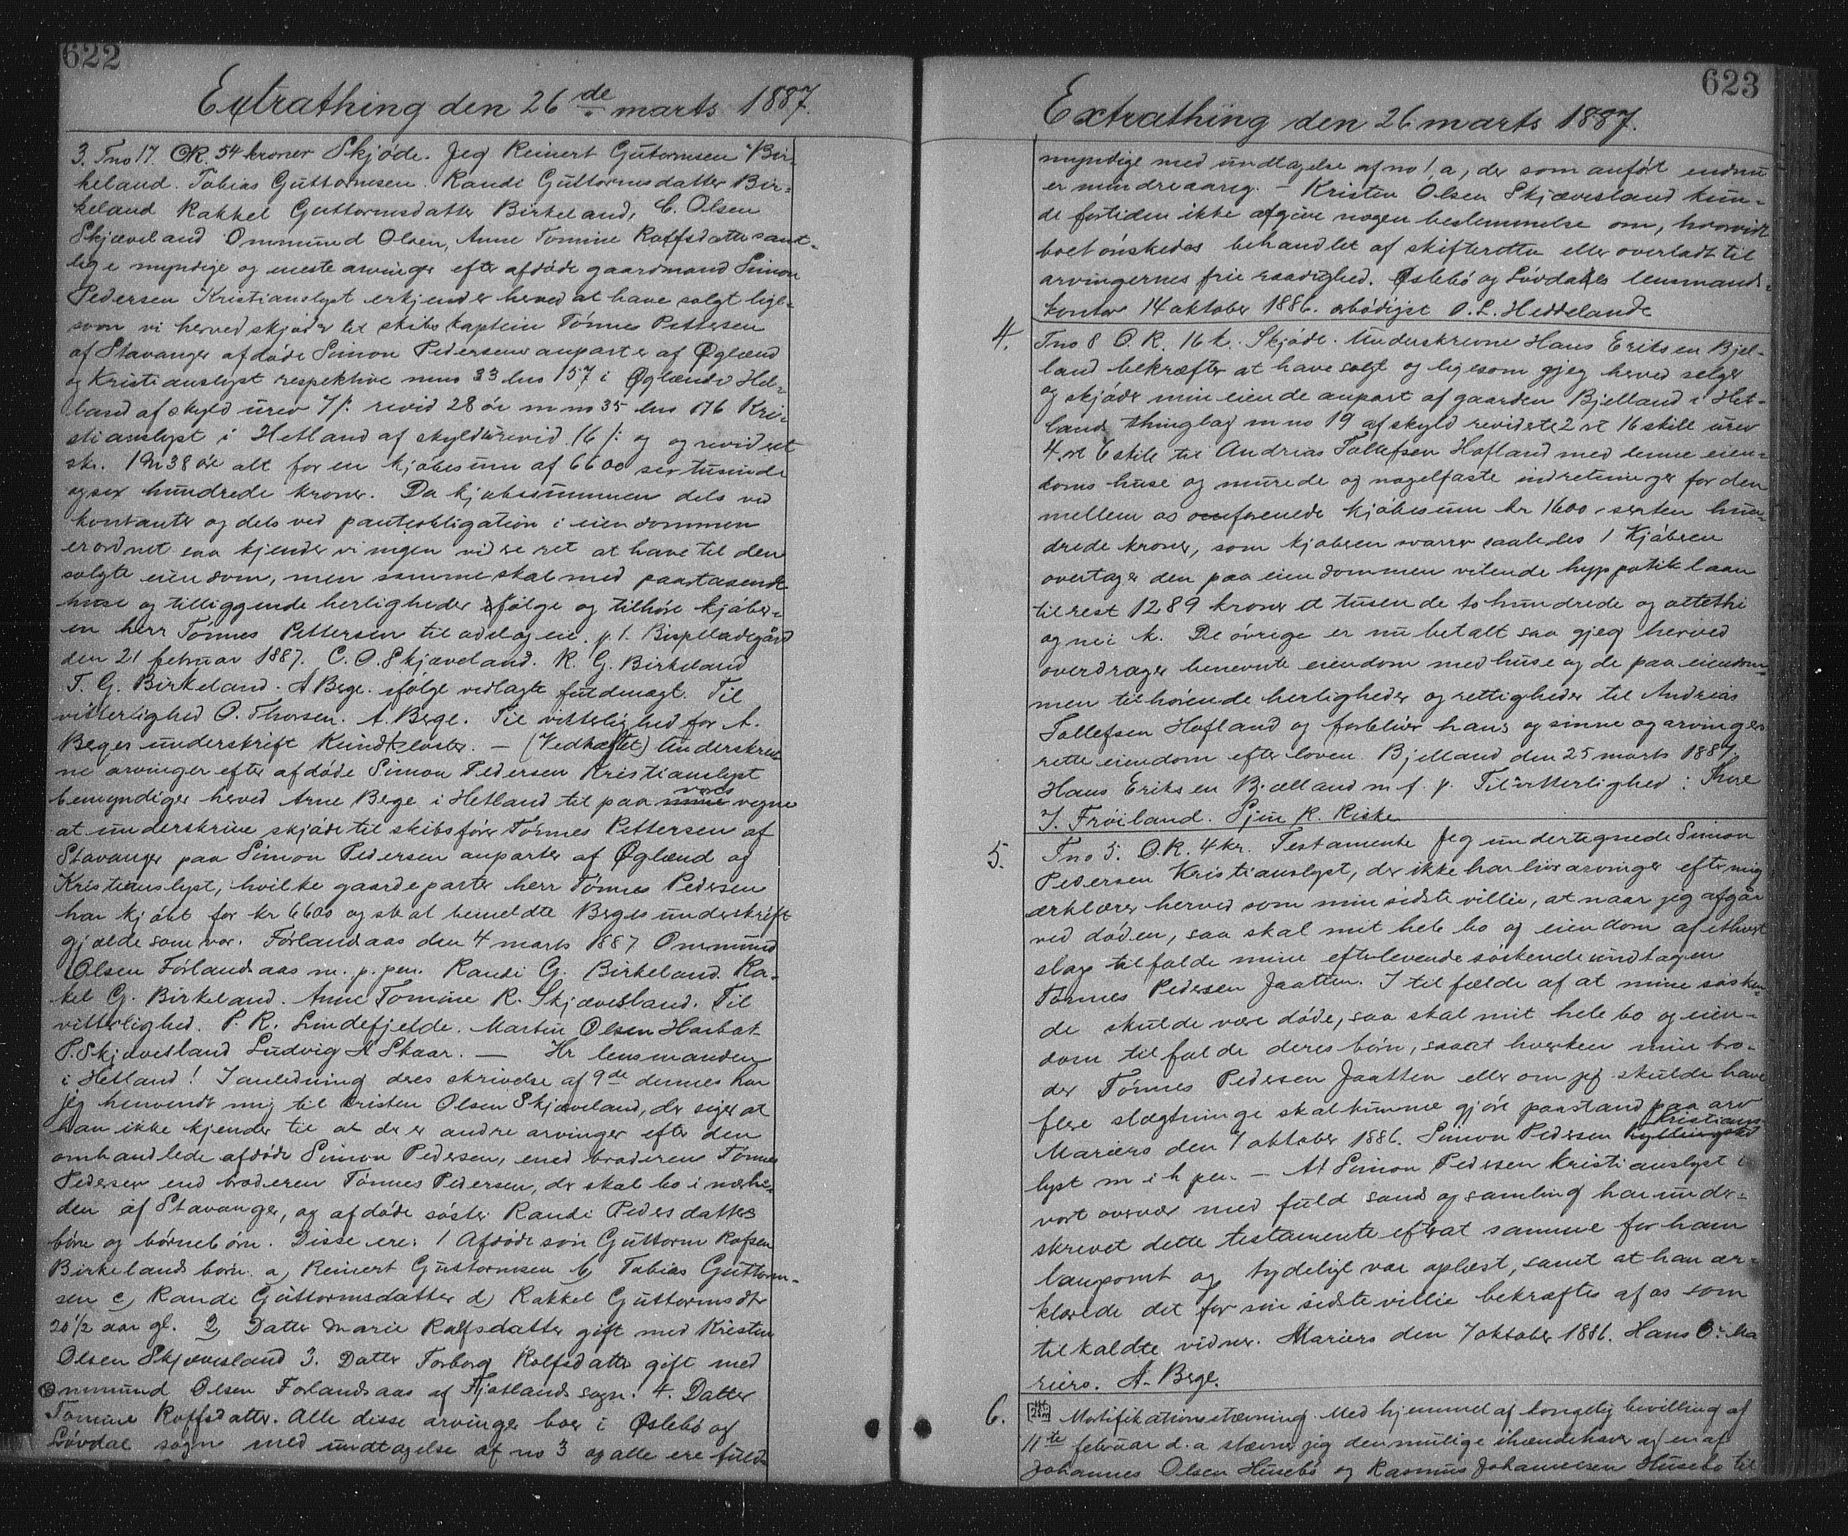 622
Extrathing den 26de marts 1887.
3. Tno 17. OK. 54 kroner Skjøde. Jeg Reinert Gutormsen Bir-
keland. Tobias Guttormsen. Randi Guttormsdatter Bir-
keland Rakkel Guttormsdatter Birkeland, C. Olsen
Skjæveland Ommund Olsen, Anne Tomine Roffsdatter samt-
lige myndige og eneste arvinger efter afdøde gaardmand Simon
Pedersen Kristianslyst erkjender herved at have solgt lige-
som vi herved skjøder til skibskaptein Tönnes Pettersen
af Stavanger afdøde Simon Pedersens anparter af Øglænd
og Kristianslyst respektive mno 33 lno 157 i Øglænd i Het-
land af skyld urev 7/: revid 28 öre m no 35 lno 176 Kri-
stianslyst i Hetland af skyld urevid. 16/: og og revideret
sk. 1 m 38 öre alt for en kjøbesum af 6600 sex tusinde
og sex hundrede kroner. Da kjøbesummen dels ved
kontanter og dels ved panteobligation i eiendommen
er ordnet saa kjender vi ingen videre ret at have til den
solgte eiendom, men samme skal med paastaaende
huse og tilliggende herligheder følge og tilhöre kjöber-
en herr Tönnes Pettersen til odel og eie. p.t. Bispeladegård
den 21 februar 1887. C. O. Skjæveland. R. G. Birkeland
T. G. Birkeland. A Berge. ifølge vedlagte fuldmagt. Til
vitterlighed O. Thorsen. A. Berge. Til vitterlighed for A.
Berges underskrift Reindt Closter. — (Vedhæftet) Underskrev-
ne arvinger efter afdøde Simon Pedersen Kristianslyst
bemyndiger herved Arne Berge i Hetland til paa mine vores vegne
at underskrive skjöde til skibsfører Tönnes Pettersen af
Stavanger paa Simon Pedersen anparter af Øglænd og
Kristianslyst, hvilke gaardeparter herr Tönnes Pedersen
har kjöbt for kr 6600 og skal bemeldte Berges underskrift
gjælde som vor. Förlandsaas den 4 marts 1887 Ommund
Olsen Förlandsaas m. p. pen. Randi G. Birkeland. Ra-
kel G. Birkeland. Anne Tomine R. Skjævesland. Til
vitterlighed. P. R. Lindefjelde. Martin Olsen Haabat
P. Skjævesland Ludvig A Skaar. — Hr lensmanden
i Hetland! I anledning deres skrivelse af 9de dennes har
jeg henvendt mig til Kristen Olsen Skjæveland, der siger at
han ikke kjender til at der er andre arvinger efter den
omhandlede afdøde Simon Pedersen, end broderen Tönnes
Pedersen end broderen Tönnes Pedersen, der skal bo i nærhe-
den af Stavanger, og afdøde söster Randi Pedersdatters
börn og börnebörn. Disse ere: 1 Afdøde sön Guttorm Rofsen
Birkelands born. a) Reinert Guttormsen b) Tobias Guttorm-
sen c) Randi Guttormsdatter d) Rakkel Guttormsdtr
20 1/2 aar gl. 2) Datter Marie Rolfsdatter gift med Kristen
Olsen Skjævesland 3. Datter Torborg Rolfsdatter gift med
Ommund Olsen Forlandsaas af Fjotlands sogn. 4. Datter
Tomine Roffsdatter. Alle disse arvinger boer i Øslebö og
Lövdal sogne med undtagelse af no 3 og alle ere fuldt
623
Extrathing den 26 marts 1887.
myndige med undtagelse af no 1, a, der som anført endnu
er mindreaarig. - Kristen Olsen Skjævesland kun-
de fortiden ikke afgive nogen bestemmelse om, hvorvidt
boet ønskedes behandlet af skifteretten eller overladt til
arvingernes frie raadighed. Øslebö og Lövdales lensmands-
kontor 14 oktober 1886. ærbödigst O. L. Heddelande
4. Tno 8 O. K. 16 k. Skjøde. Underskrevne Hans Eriksen Bjel-
land bekræfter at have solgt og ligesom gjeg herved selger
og skjøder min eiende anpart af gaarden Bjelland i Het-
land thinglag m no 19 af skyld revideret 2 rt 16 skill urev
4 rt 6 skill til Andreas Tollefsen Hofland med denne eien-
doms huse og murede og nagelfaste indretninger for den
mellem os omforenede kjøbesum kr 1600. sexten hun-
drede kroner, som kjøberen svarer saaledes 1 Kjøberen
overtager den paa eiendommen vilende hyppotiklaan
til rest 1289 kroner et tusende to hundrede og ottethi
og nei k. De övrige er nu betalt saa gjeg herved
overdrager benevnte eiendom med huse og de paa eiendom-
men tilhörende herligheder og rettigheder til Andreas
Tollefsen Hofland og forbliver hans og sinne og arvinges
rette eiendom efter loven. Bjelland den 25 marts 1887
Hans Eriksen Bjælland m. f. p. Til vitterlighed: Thore
T. Fröiland. Sjur R. Riske
5. Tno 5. O. K. 4 kr. Testamente Jeg undertegnede Simon
Pedersen Kristianslyst, der ikke har livsarvinger efter mig
erklærer herved som min sidste villie, at naar jeg afgår
ved döden, saa skal mit hele bo og eiendom af ethvert
slags tilfalde mine efterlevende söskende undtagen
Tönnes Pedersen Jaatten. I tilfælde af at mine sösken-
de skulde være døde, saa skal mit hele bo og eien-
dom tilfalde deres børn, saaat hverken min bro-
der Tönnes Pedersen Jaatten eller om jeg skulde have
flere slægtninge skal kunne gjöre paastand paa arv
Mariero den 7 oktober 1886. Simon Pedersen Kristians-
lyst m i h pen. — At Simon Pedersen Kristianslyst i
vort overvær med fuld sands og samling har under-
skrevet dette testamente efterat samme for ham
langsomt og tydeligt var oplæst, samt at han er-
klærede det for sin sidste villie bekræftes af os som
tilkaldte vidner. Mariero den 7 oktober 1886. Hans O. Ma-
riero. A. Berge.
6. Mortifikationsstævning. Med hjemmel af kongelig bevilling af
11te februar d. a stævner jeg den mulige ihændehaver af en af
Johannes Olsen Husebö og Rasmus Johannesen Husebö til